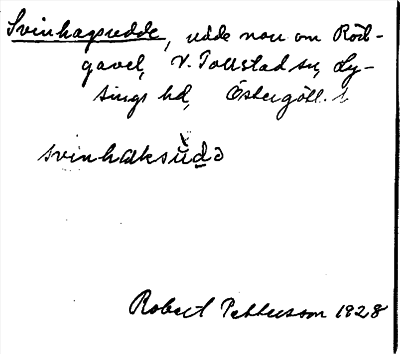 Svinhagsudde, udde nov om Röd-
gavel, V. Tollstad sn, Ly-
sings hd, Östergötl. l
svinhaksùdə
Robert Pettersson 1928